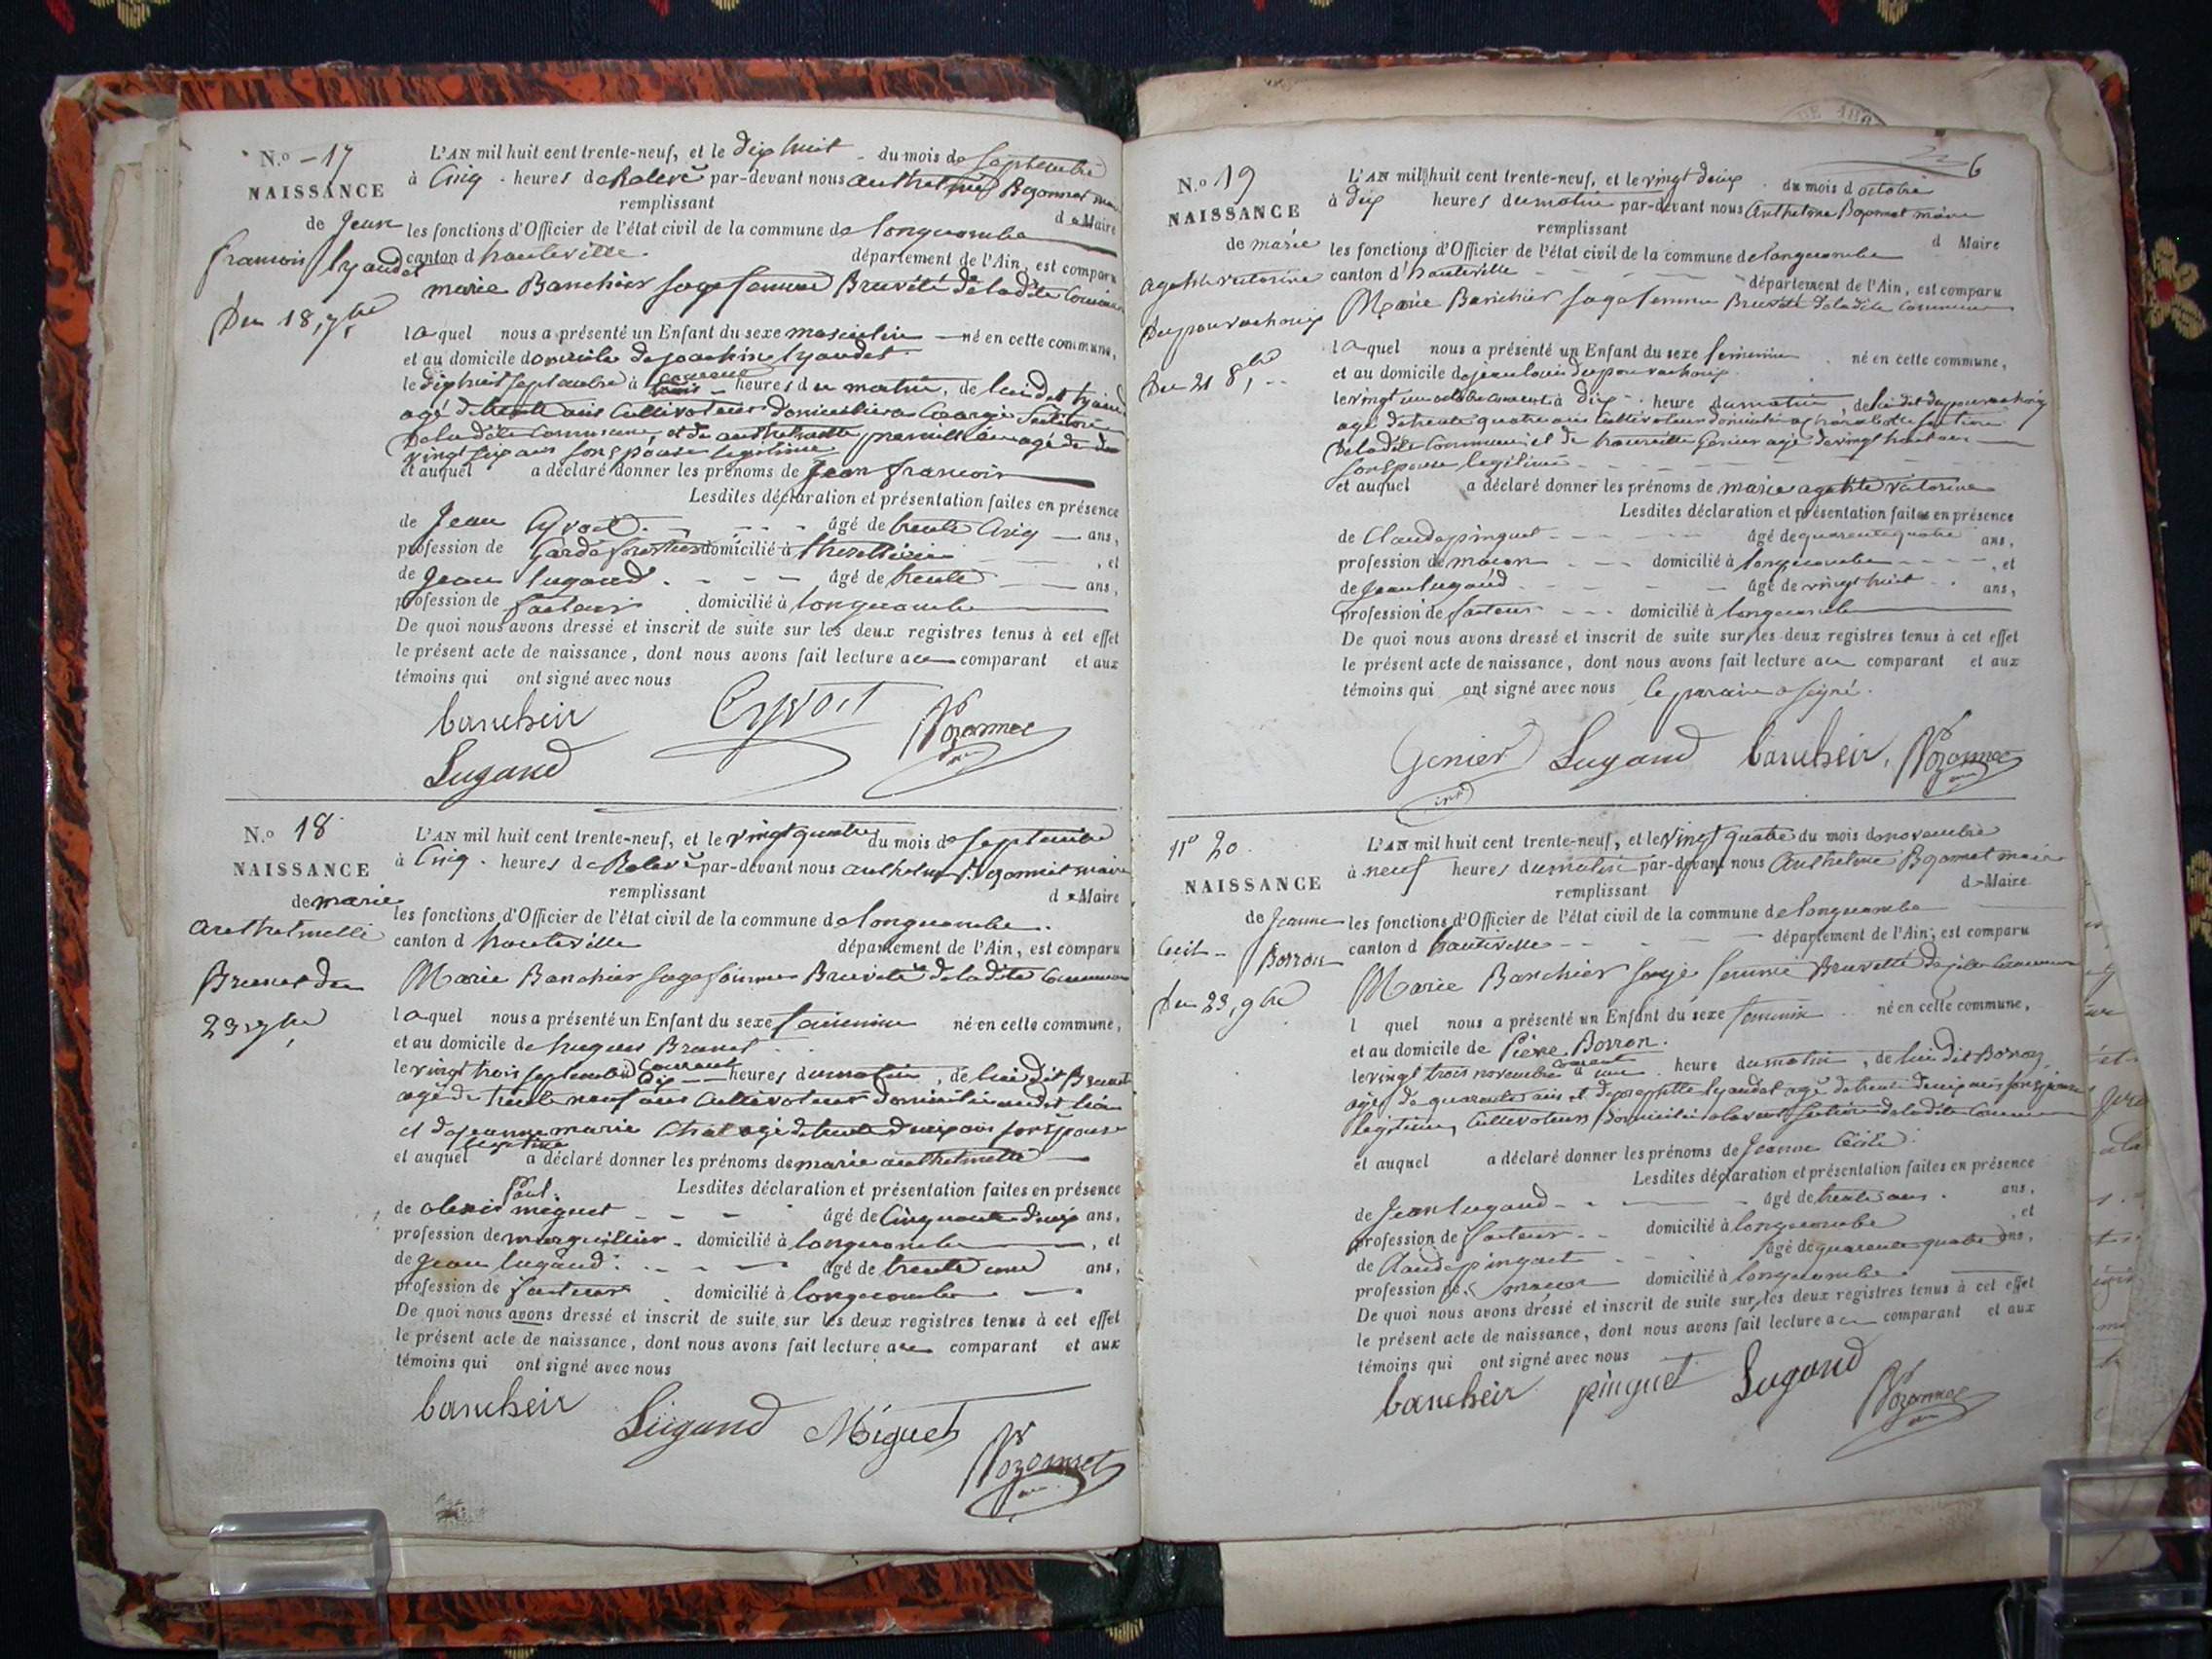 N.o - 17
NAISSANCE
de Jean
francois lyaudet
Du 18, 7bre
L'AN mil huit cent trente-neuf, et le dix huit du mois de Septembre
à Cinq heures de Relevé par-devant nous anthelme Bozonnet maire
remplissant d Maire
les fonctions d'Officier de l'état civil de la commune de longecombe
canton d hauteville département de l'Ain, est comparu
marie Banchier sage femme Brevété de ladite Commune
laquel nous a présenté un Enfant du sexe masculin né en cette commune,
et au domicile de joachim lyaudet
le dix huit septembre courant à heures du matin, de lui dit lyaudet
agé de trente ans Cultivateur
de ladite Commune, et de anthelmette agé de
vingt six ans son épouse légitime
et auquel a déclaré donner les prénoms de Jean francois
Lesdites déclaration et présentation faites en présence
de Jean Cyvoct âgé de trente Cinq ans,
profession de Garde forestier domicilié à thezillieu, et
de Jean lugand âgé de trente ans,
profession de facteur domicilié à longecombe
De quoi nous avons dressé et inscrit de suite sur les deux registres tenus à cet effet
le présent acte de naissance, dont nous avons fait lecture a comparant et aux
témoins qui ont signé avec nous
bancheir Cyvoct Bozonnet
Lugand
N.o 18
NAISSANCE
de marie
anthelmette
Brunet du
23 7bre
L'AN mil huit cent trente-neuf, et le vingt quatre du mois de septembre
à Cinq heures de Relevé par-devant nous anthelme Bozonnet maire
remplissant d Maire
les fonctions d'Officier de l'état civil de la commune de longecombe
canton d hauteville département de l'Ain, est comparu
Marie Banchier sage femme Breveté de ladite Commune
laquel nous a présenté un Enfant du sexe féminin né en cette commune,
et au domicile de hugues Brunet
le vingt trois septembre courant à dix heures du matin, de lui dit Brunet
agé de trente neuf ans Cultivateur domicilié audit lieu
et de jeanne marie agé de trente deux ans son épouse
légitime
et auquel a déclaré donner les prénoms de marie anthelmette
Lesdites déclaration et présentation faites en présence
de alexis Paul miguet âgé de Cinquante deux ans,
profession de marguillier domicilié à longecombe, et
de jean lugand âgé de trente ans,
profession de facteur domicilié à longecombe
De quoi nous avons dressé et inscrit de suite sur les deux registres tenus à cet effet
le présent acte de naissance, dont nous avons fait lecture a comparant et aux
témoins qui ont signé avec nous
bancheir Lugand Miguet Bozonnet
6
N.o 19
NAISSANCE
de marie
agathe victorine
Dupourachoux
Du 21 8bre
L'AN mil huit cent trente-neuf, et le vingt deux du mois d octobre
à dix heures du matin par-devant nous Anthelme Bozonnet maire
remplissant d Maire
les fonctions d'Officier de l'état civil de la commune de longecombe
canton d hauteville département de l'Ain, est comparu
Marie Banchier sage femme Breveté de ladite Commune
laquel nous a présenté un Enfant du sexe féminin né en cette commune,
et au domicile de jean louis
le vingt un octobre courant à dix heure du matin, de lui dit
agé de trente quatre ans Cultivateur domicilié
de ladite Commune et de Genier agé de vingt huit ans
son épouse légitime
et auquel a déclaré donner les prénoms de marie agathe victorine
Lesdites déclaration et présentation faites en présence
de Claude pinguet âgé de quarante quatre ans,
profession de macon domicilié à longecombe, et
de Jean lugand âgé de vingt huit ans,
profession de facteur domicilié à longecombe
De quoi nous avons dressé et inscrit de suite sur les deux registres tenus à cet effet
le présent acte de naissance, dont nous avons fait lecture a comparant et aux
témoins qui ont signé avec nous le parain a signé.
Genier Lugand bancheir, Bozonnet
no 20
NAISSANCE
de Jeanne
Cecil Borron
Du 23, 9bre
L'AN mil huit cent trente-neuf, et le vingt quatre du mois de novembre
à neuf heures du matin par-devant nous Anthelme Bozonnet maire
remplissant d Maire
les fonctions d'Officier de l'état civil de la commune de longecombe
canton d hauteville département de l'Ain, est comparu
Marie Banchier sage femme Brevetté de Commune
l quel nous a présenté un Enfant du sexe feminin né en cette commune,
et au domicile de Piere Borron.
le vingt trois novembre courant à une heure du matin, de lui dit Borron,
agé de quarante ans et de josephette lyaudet agé de trente deux ans son épouse
légitime, Cultivateurs section de ladite Commune
et auquel a déclaré donner les prénoms de Jeanne Cécile
Lesdites déclaration et présentation faites en présence
de Jean lugand âgé de trente ans ans,
profession de facteur domicilié à longecombe, et
de Claude pinguet âgé de quarante quatre ans,
profession de macon domicilié à longecombe
De quoi nous avons dressé et inscrit de suite sur les deux registres tenus à cet effet
le présent acte de naissance, dont nous avons fait lecture a comparant et aux
témoins qui ont signé avec nous
bancheir pinguet Lugand Bozonnet